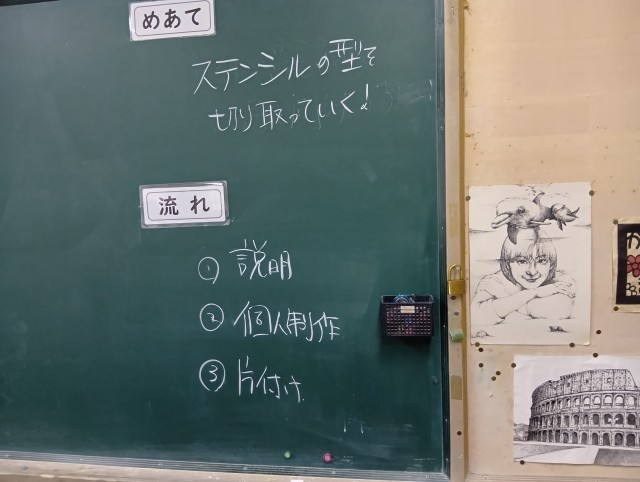 めあて
ステンシルの型を
切り取っていく!
流れ
① 説明
② 個人制作
③ 片付け
か